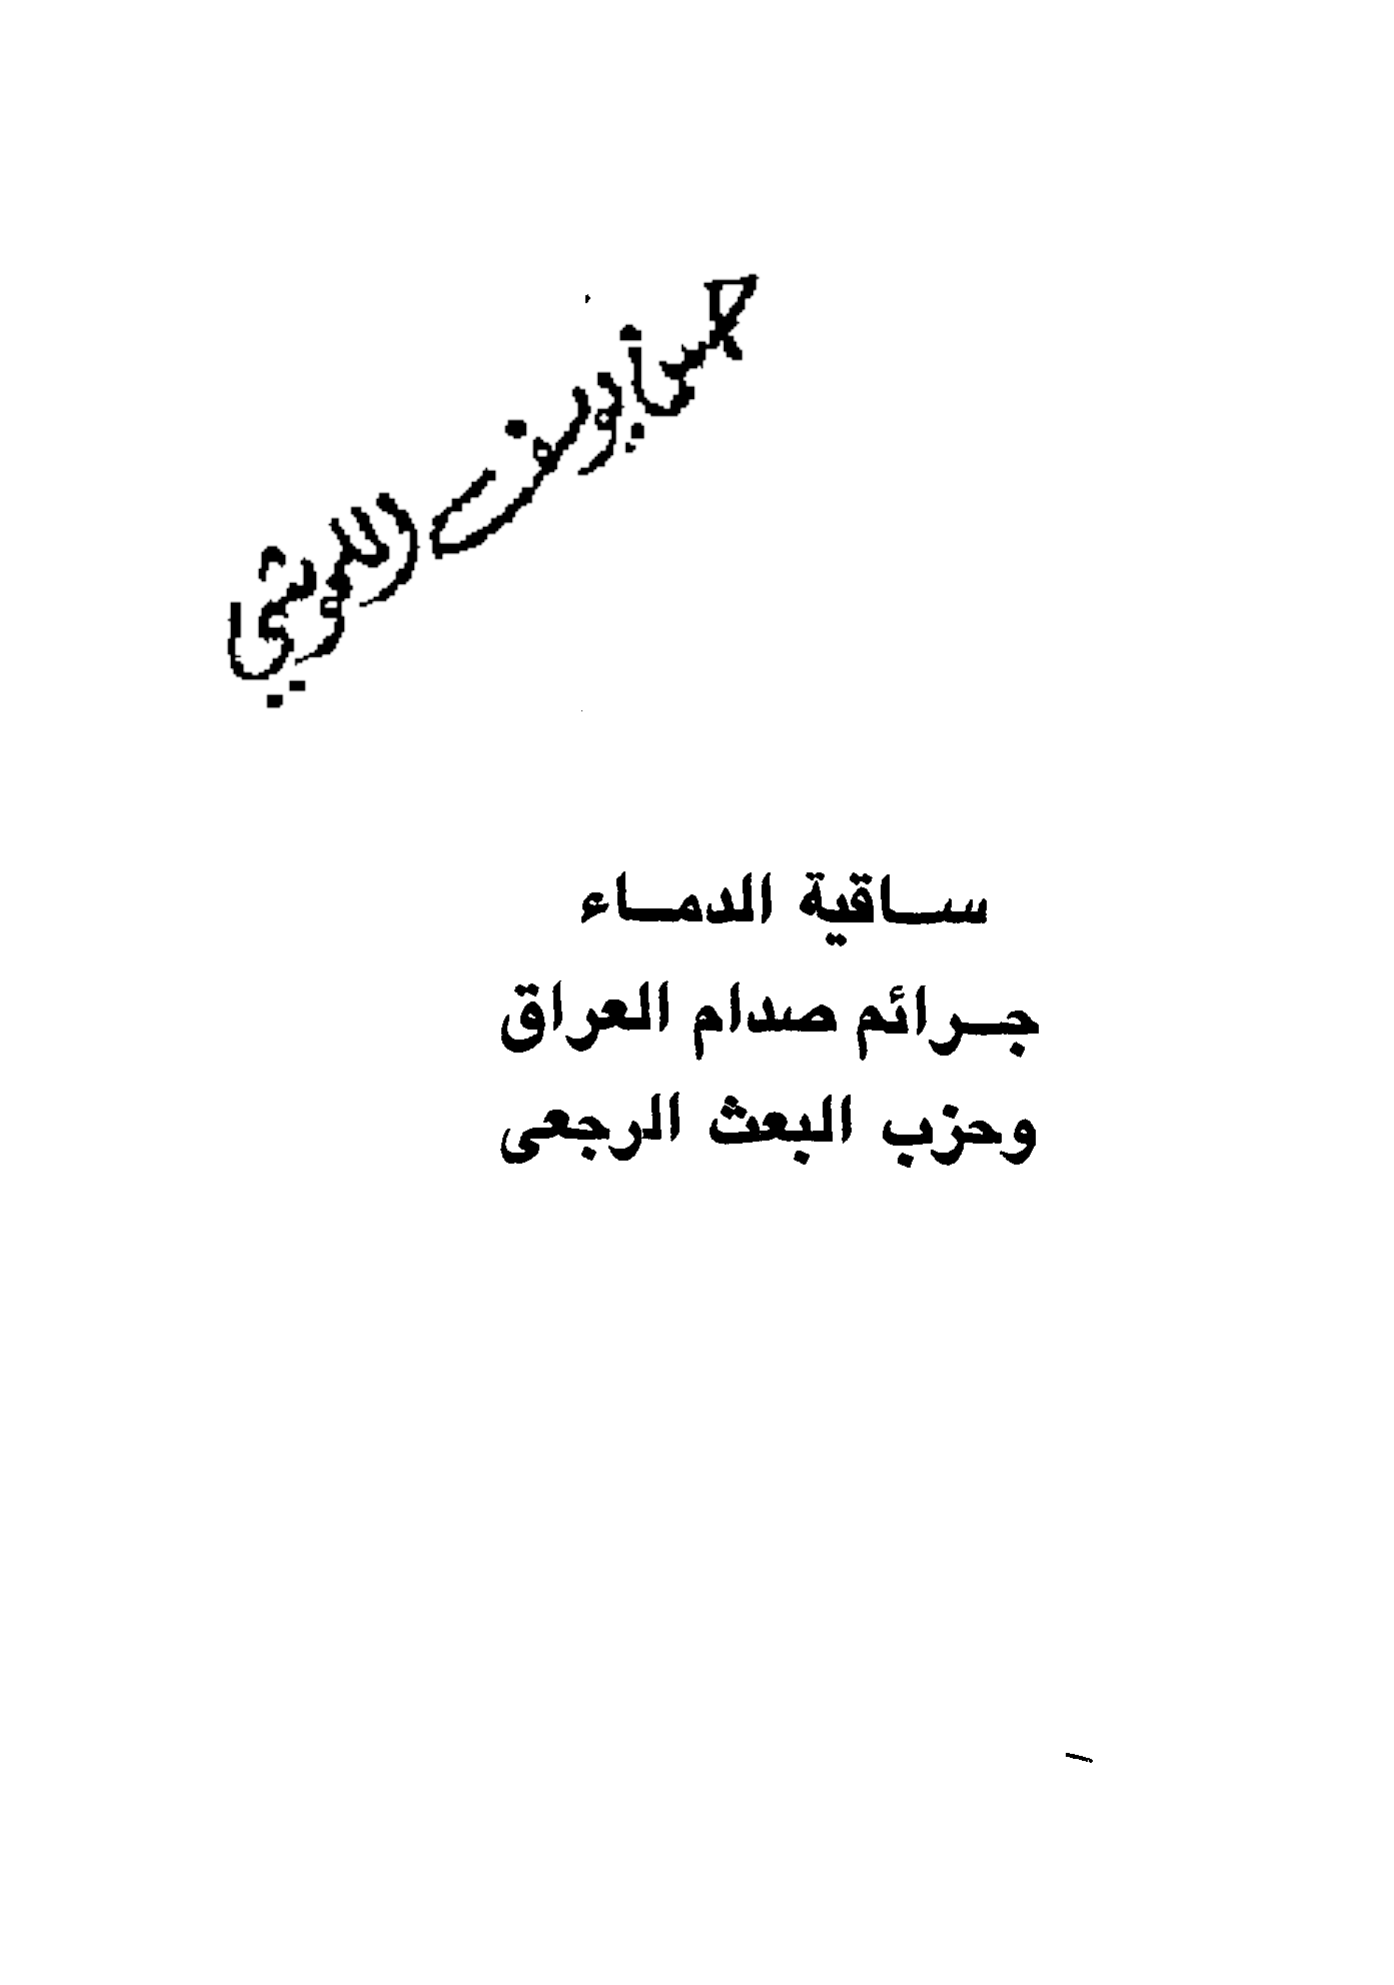 ساقية الدماء
جرائم صدام العراق
وحزب البعث الرجعى